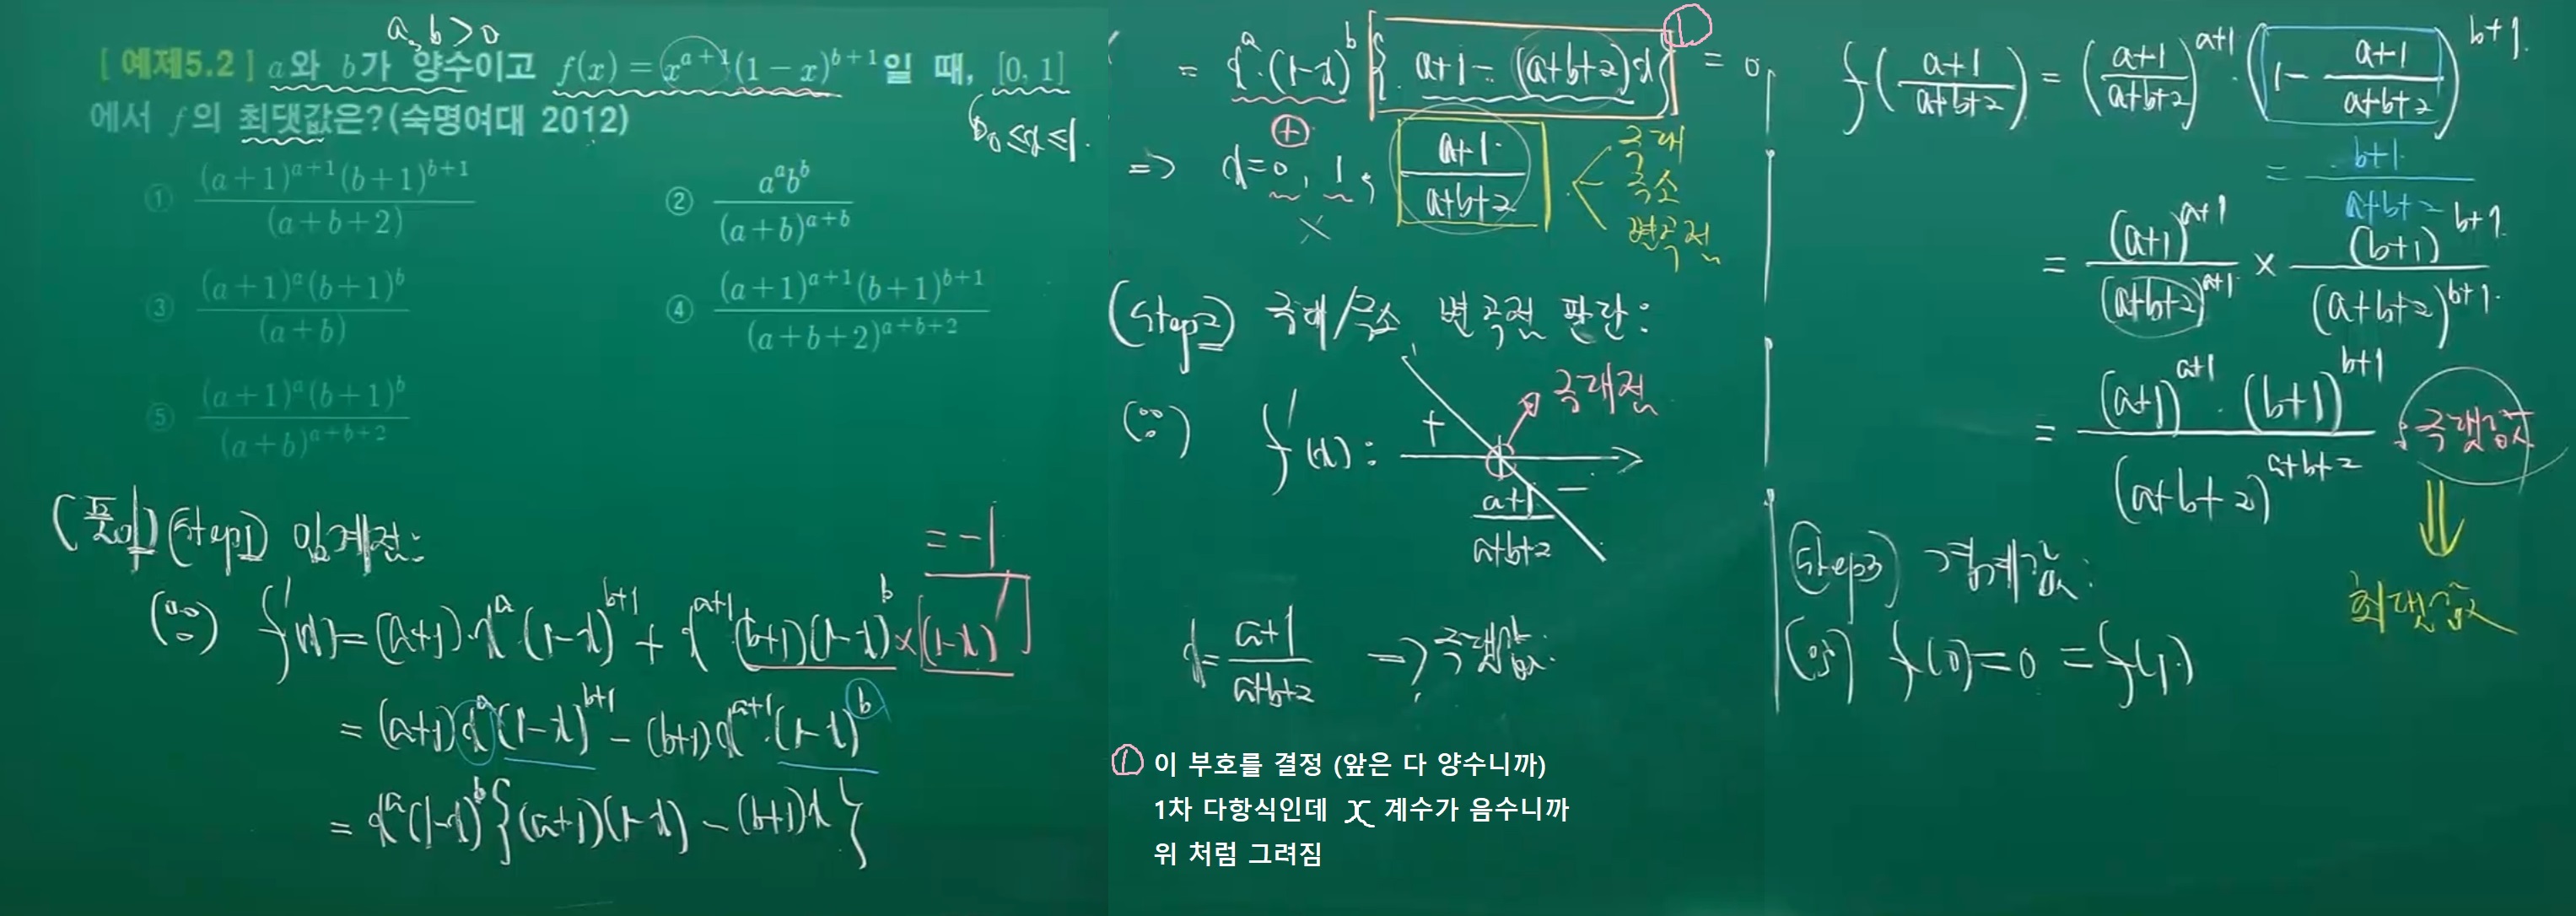 a, b > 0
[ 예제5.2 ] a와 b가 양수이고 f(x) = x^{a+1}(1-x)^{b+1}일 때, [0, 1]
에서 f의 최댓값은?(숙명여대 2012)
0 ≤ x ≤ 1.
① \frac{(a+1)^{a+1}(b+1)^{b+1}}{(a+b+2)}
② \frac{a^a b^b}{(a+b)^{a+b}}
③ \frac{(a+1)^a(b+1)^b}{(a+b)}
④ \frac{(a+1)^{a+1}(b+1)^{b+1}}{(a+b+2)^{a+b+2}}
⑤ \frac{(a+1)^a(b+1)^b}{(a+b)^{a+b+2}}
(풀이) (Step1) 임계점:
= -1
f'(x) = (a+1)·x^a·(1-x)^{b+1} + x^{a+1}(b+1)(1-x)^b × (1-x)'
= (a+1)x^a(1-x)^{b+1} - (b+1)x^{a+1}·(1-x)^b
= x^a(1-x)^b{(a+1)(1-x) - (b+1)x}
= x^a·(1-x)^b{a+1 - (a+b+2)x} = 0 ①
⊕
⇒ x = 0, 1, \frac{a+1}{a+b+2}
×
극대
극소
변곡점
(Step2) 극대/극소 변곡점 판단:
(∵) f'(x): + −
극대점
\frac{a+1}{a+b+2}
x = \frac{a+1}{a+b+2} ⇒ 극댓값:
① 이 부호를 결정 (앞은 다 양수니까)
1차 다항식인데 x 계수가 음수니까
위 처럼 그려짐
f(\frac{a+1}{a+b+2}) = (\frac{a+1}{a+b+2})^{a+1}·(1 - \frac{a+1}{a+b+2})^{b+1}
= \frac{b+1}{a+b+2}
= \frac{(a+1)^{a+1}}{(a+b+2)^{a+1}} × \frac{(b+1)^{b+1}}{(a+b+2)^{b+1}}
= \frac{(a+1)^{a+1}·(b+1)^{b+1}}{(a+b+2)^{a+b+2}} : 극댓값
⇓
최댓값
(Step3) 경계값:
(∵) f(0) = 0 = f(1)